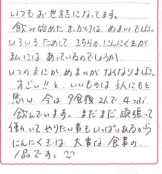 いつもお世話になってます。
飲み始めたきっかけは めまいでした。
いろいろためして こちらのにんにく玉が
私には あっているのでしょうか
いつのまにか めまいがなくなりました。
すごい!! と、いいものは 人にもと
思い 今は 夕食後 2人で 4つぶ
飲んでいます。 まだまだ 頑張って
働いて やりたい事もいっぱいあるから
にんにく玉は 大事な 食事の
1品です。